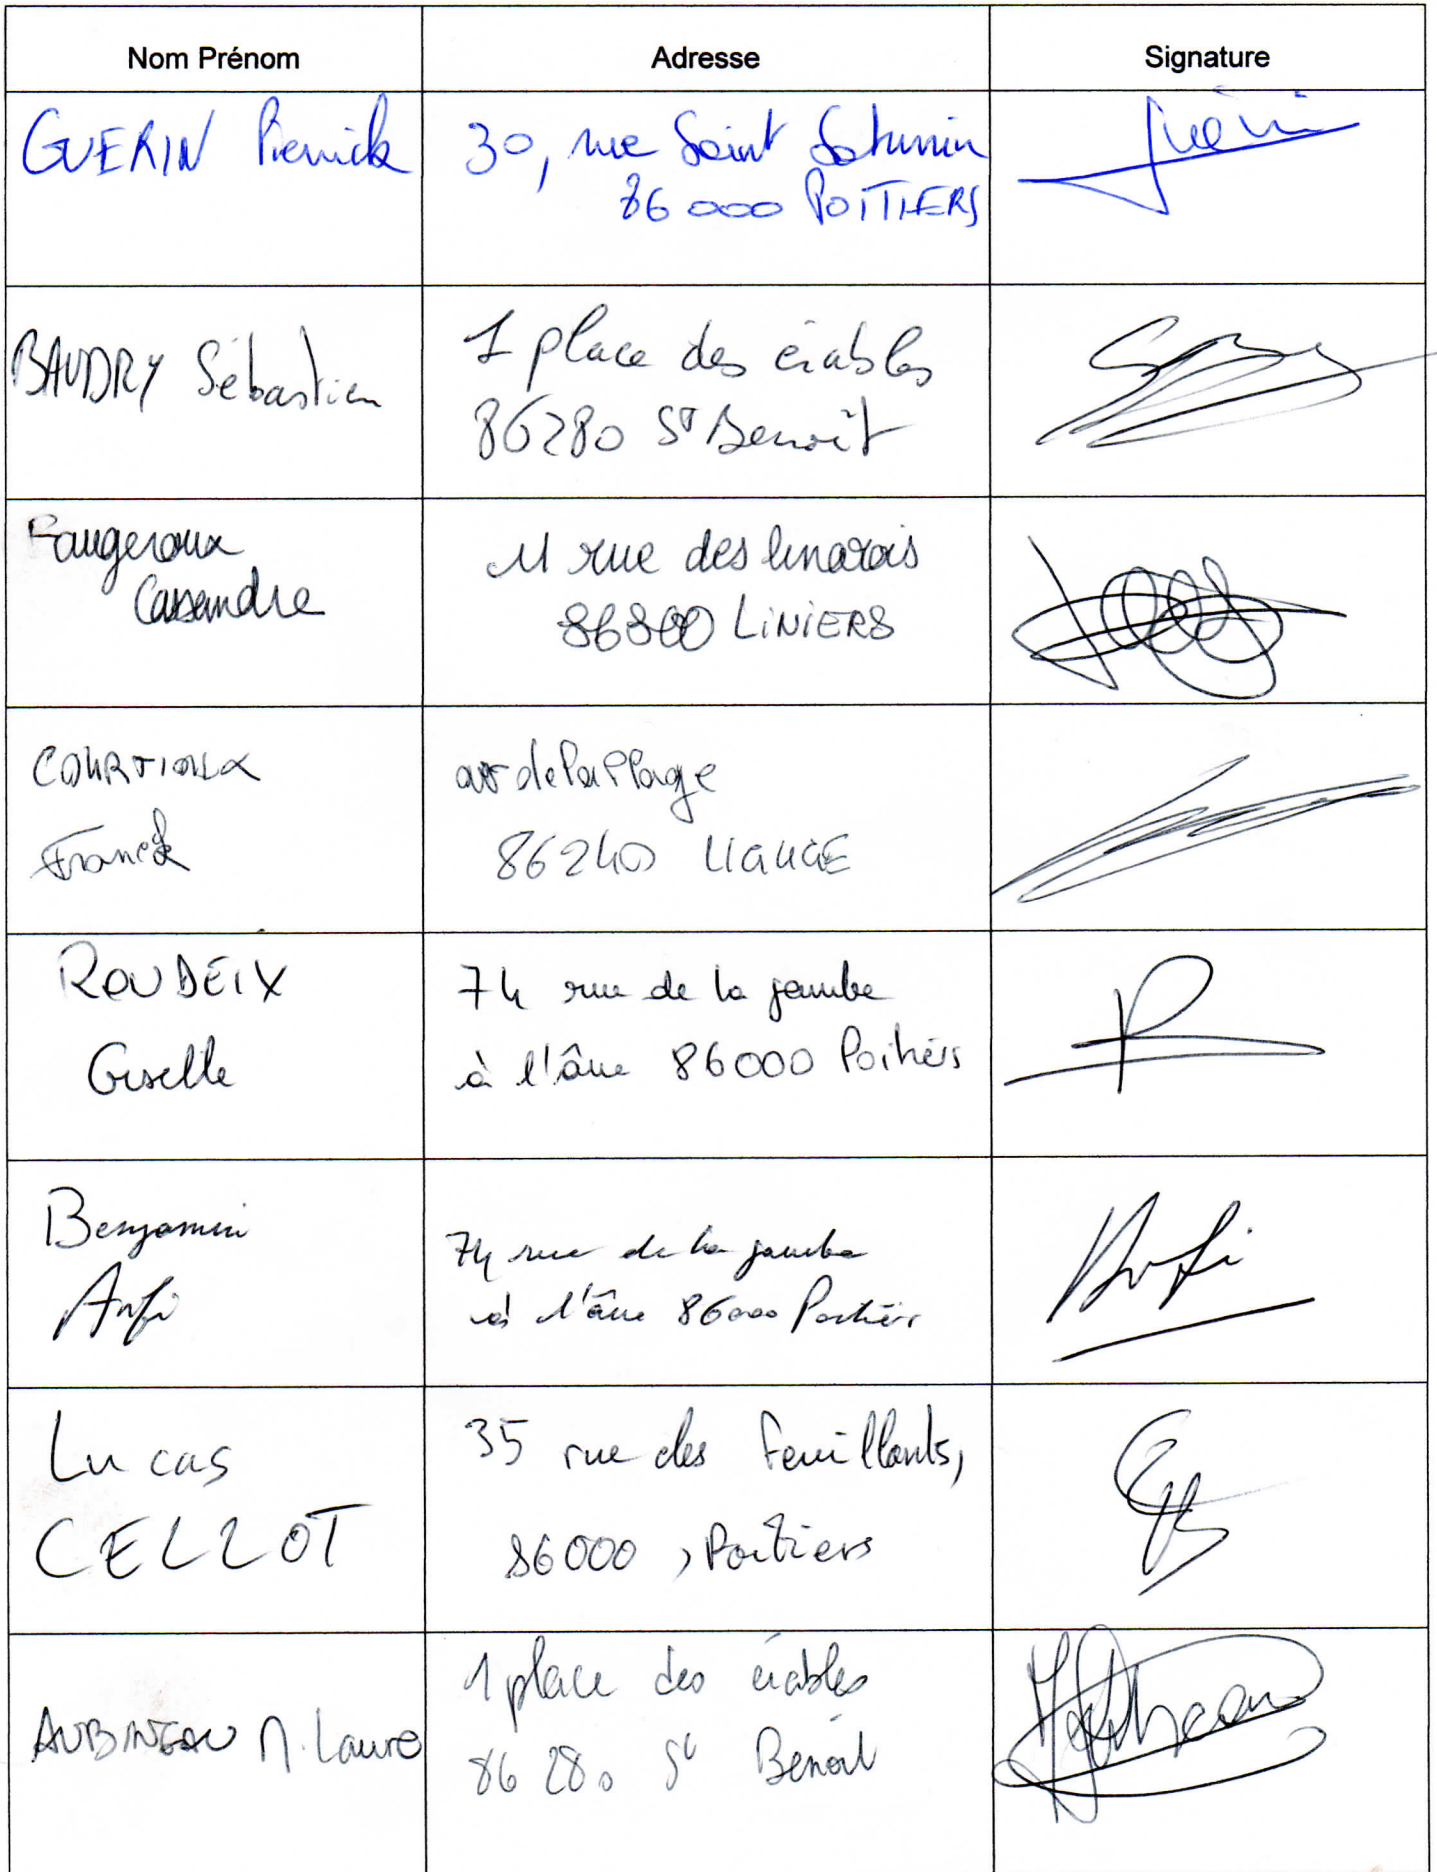 Nom Prénom Adresse Signature
GUERIN Pierrick 30, rue Saint Saturnin
86000 POITIERS
BAUDRY Sébastien 1 place des érables
86280 St Benoît
Faugeroux 11 rue des linarois
Cassandre 86800 LINIERS
COURTIOUX av de la Plage
Franck 86240 LIGUGE
ROUDEIX 74 rue de la jambe
Giselle à l'âne 86000 Poitiers
Benjamin 74 rue de la jambe
à l'âne 86000 Poitiers
Lucas 35 rue des Feuillants,
CELLOT 86000, Poitiers
AUBINEAU M. Laure 1 place des érables
86280 St Benoit